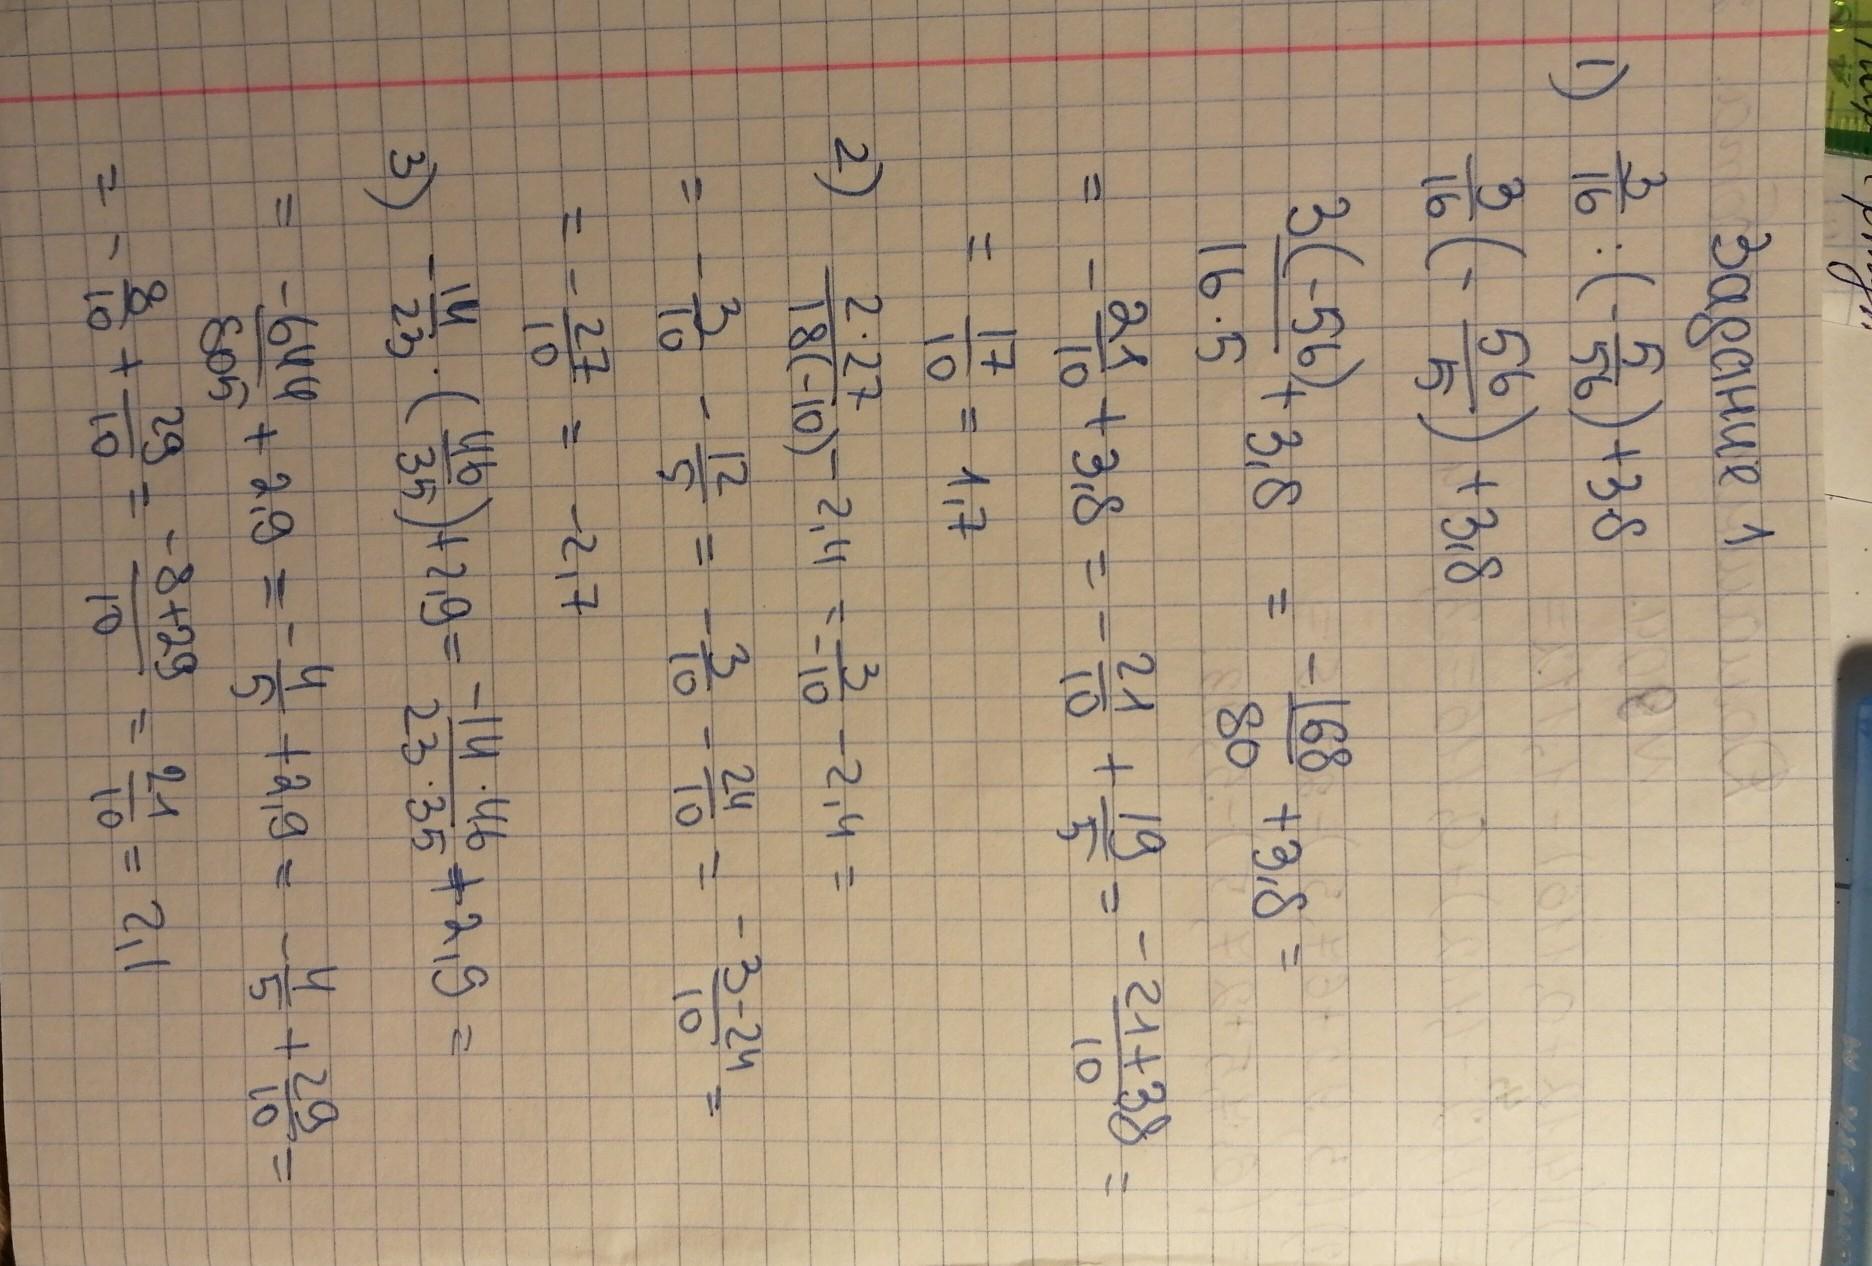 Задание 1
1) 3/16 : (-5/56) + 3.8
3/16 (- 56/5) + 3,8
3(-56)/16·5 + 3,8 = -168/80 + 3,8 =
= -21/10 + 3,8 = -21/10 + 19/5 = -21+38/10 =
= 17/10 = 1,7
2) 2·27/18(-10) - 2,4 = 3/-10 - 2,4 =
= -3/10 - 12/5 = -3/10 - 24/10 = -3-24/10 =
= -27/10 = -2,7
3) -14/23 · (46/35) + 2,9 = -14·46/23·35 + 2,9 =
= -644/805 + 2,9 = -4/5 + 2,9 = -4/5 + 29/10 =
= -8/10 + 29/10 = -8+29/10 = 21/10 = 2,1